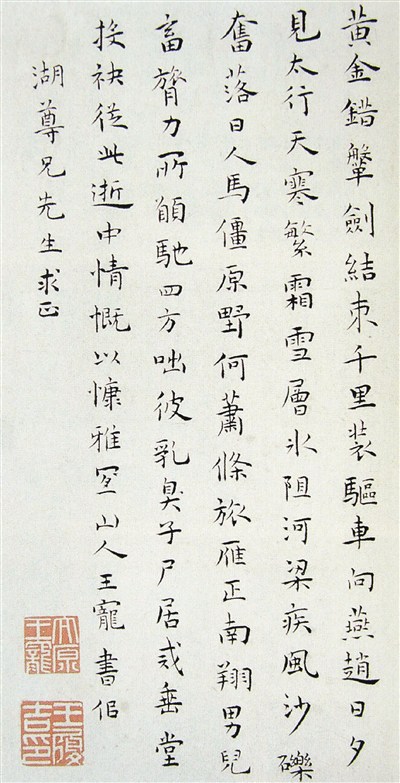 黃金錯鞶劍結束千里裝驅車向燕趙日夕
見太行天寒繁霜雪層冰阻河梁疾風沙礫
奮落日人馬僵原野何蕭條旅雁正南翔男兒
富膂力所願馳四方咄彼乳臭子尸居戒垂堂
投袂從此逝中情慨以慷雅宜山人王寵書似
湖尊兄先生求正
太原王寵
王履吉印